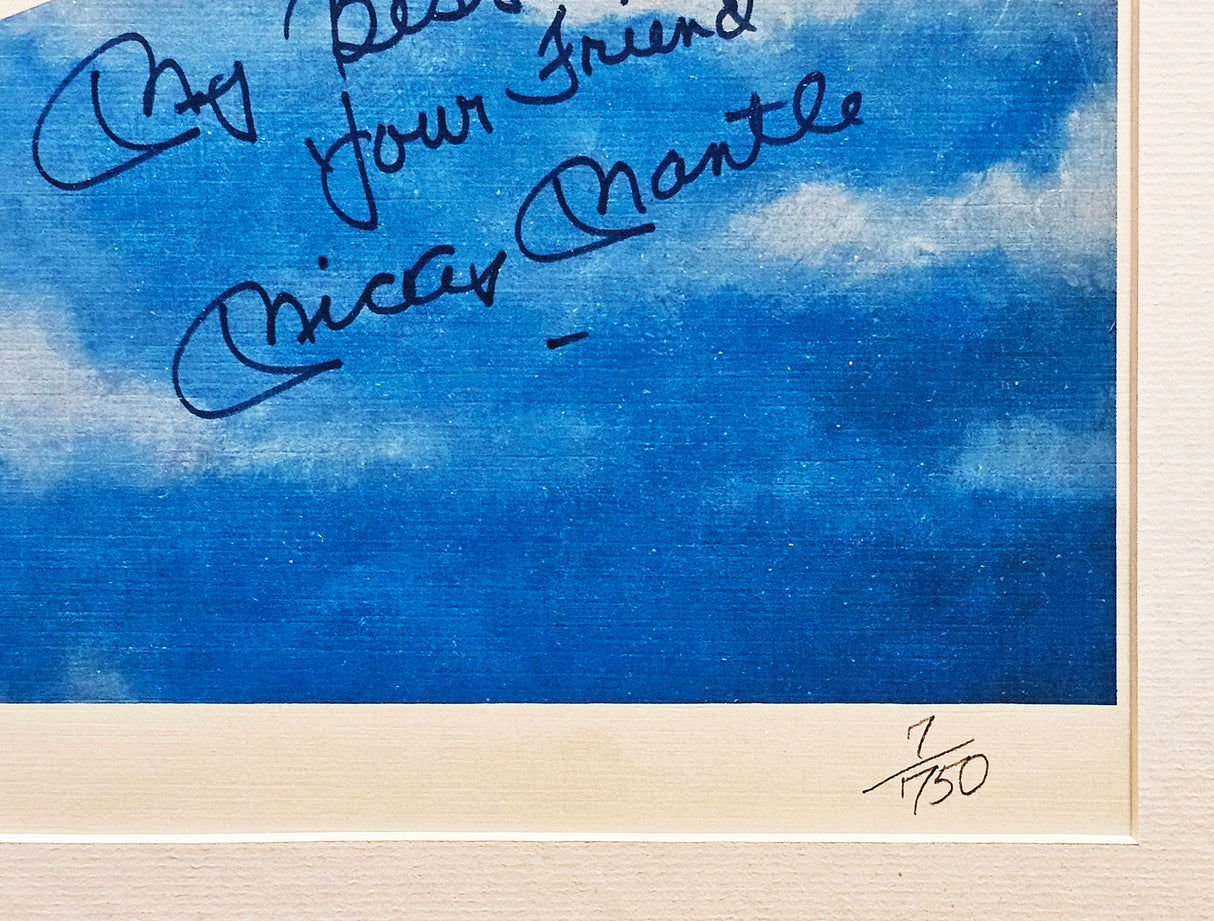 My Best
your Friend
Mickey Mantle
7/750